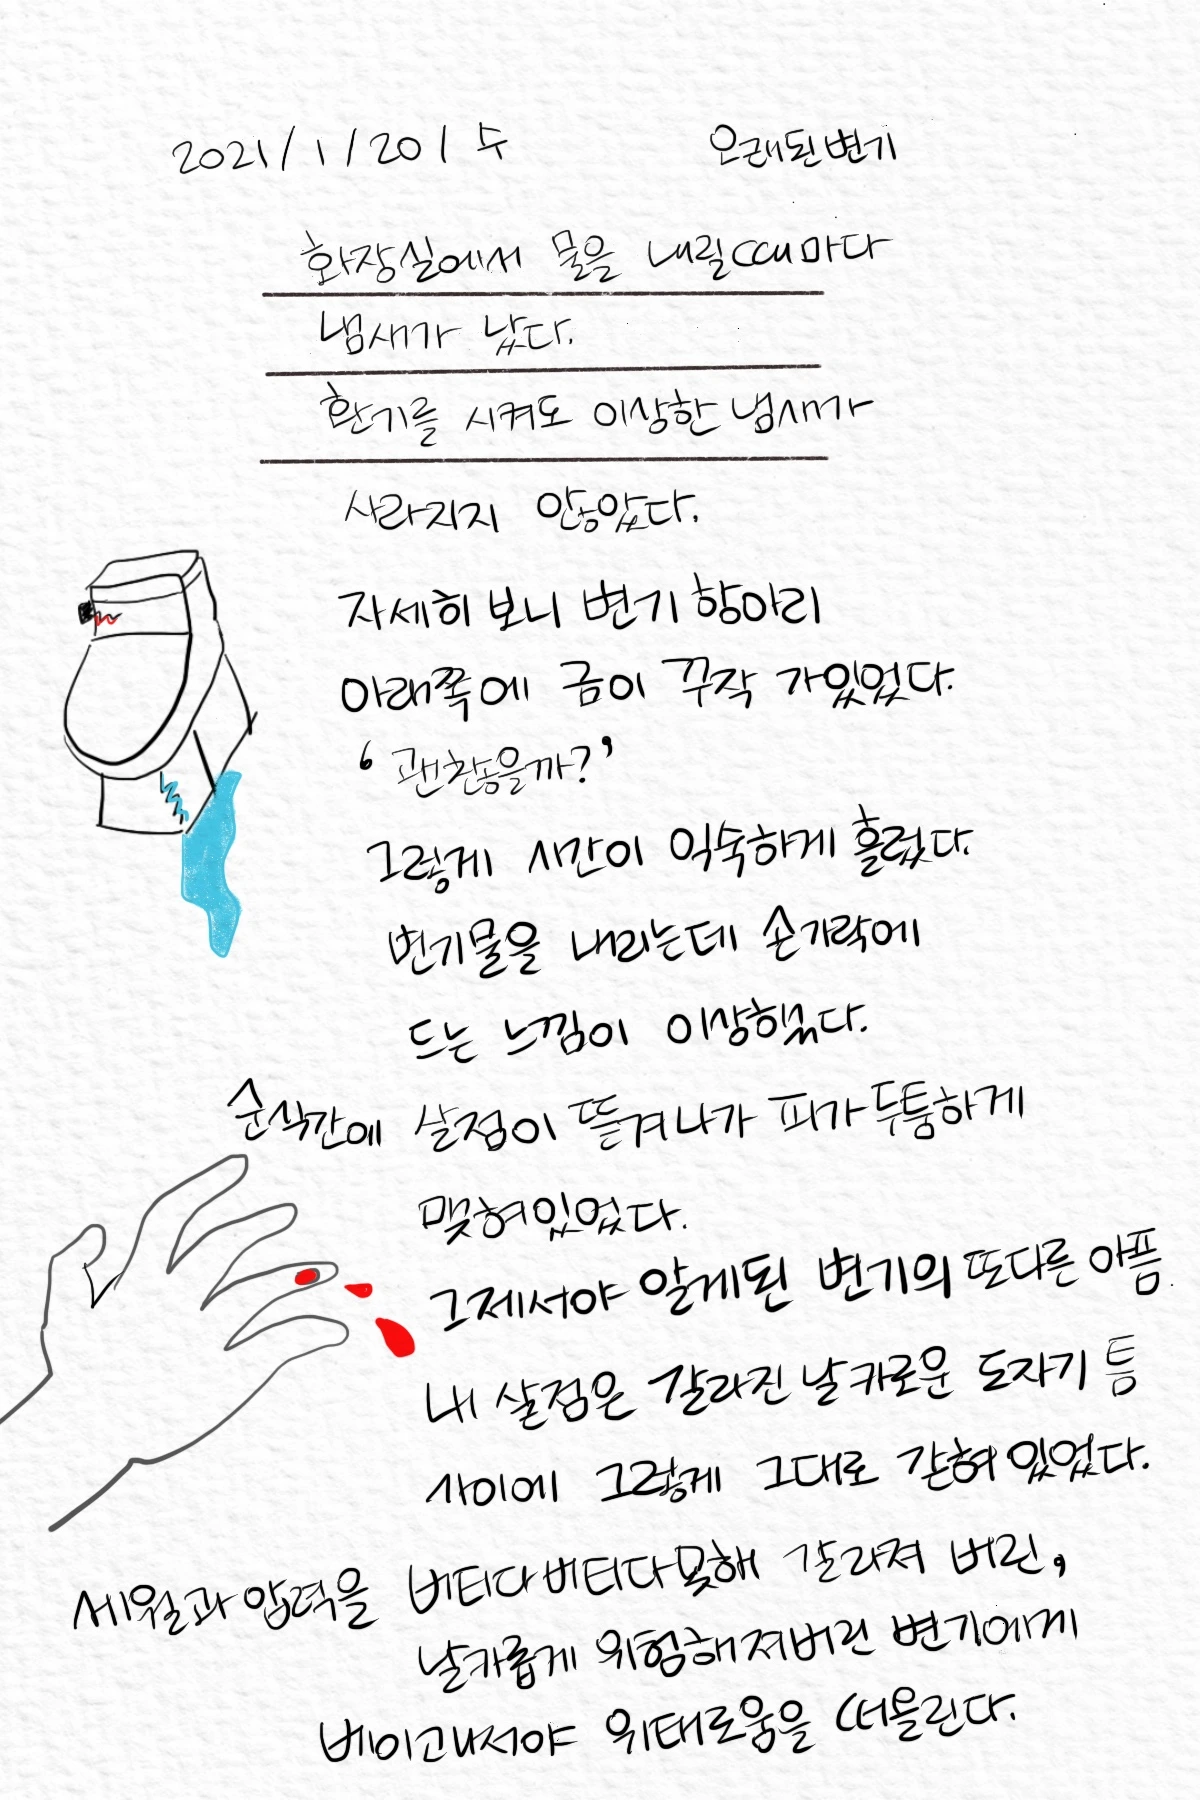 2021/1/20/수 오래된변기
화장실에서 물을 내릴때마다
냄새가 났다.
환기를 시켜도 이상한 냄새가
사라지지 않았다.
자세히 보니 변기 항아리
아래쪽에 금이 꾸작 가있었다.
‘괜찮을까?’
그렇게 시간이 익숙하게 흘렀다.
변기물을 내리는데 손가락에
드는 느낌이 이상했다.
순식간에 살점이 뜯겨나가 피가 두툼하게
맺혀있었다.
그제서야 알게된 변기의 또다른 아픔.
내 살점은 갈라진 날카로운 도자기 틈
사이에 그렇게 그대로 갇혀있었다.
세월과 압력을 버티다버티다못해 갈라져 버린,
날카롭게 위험해져버린 변기에게
베이고나서야 위태로움을 떠올린다.